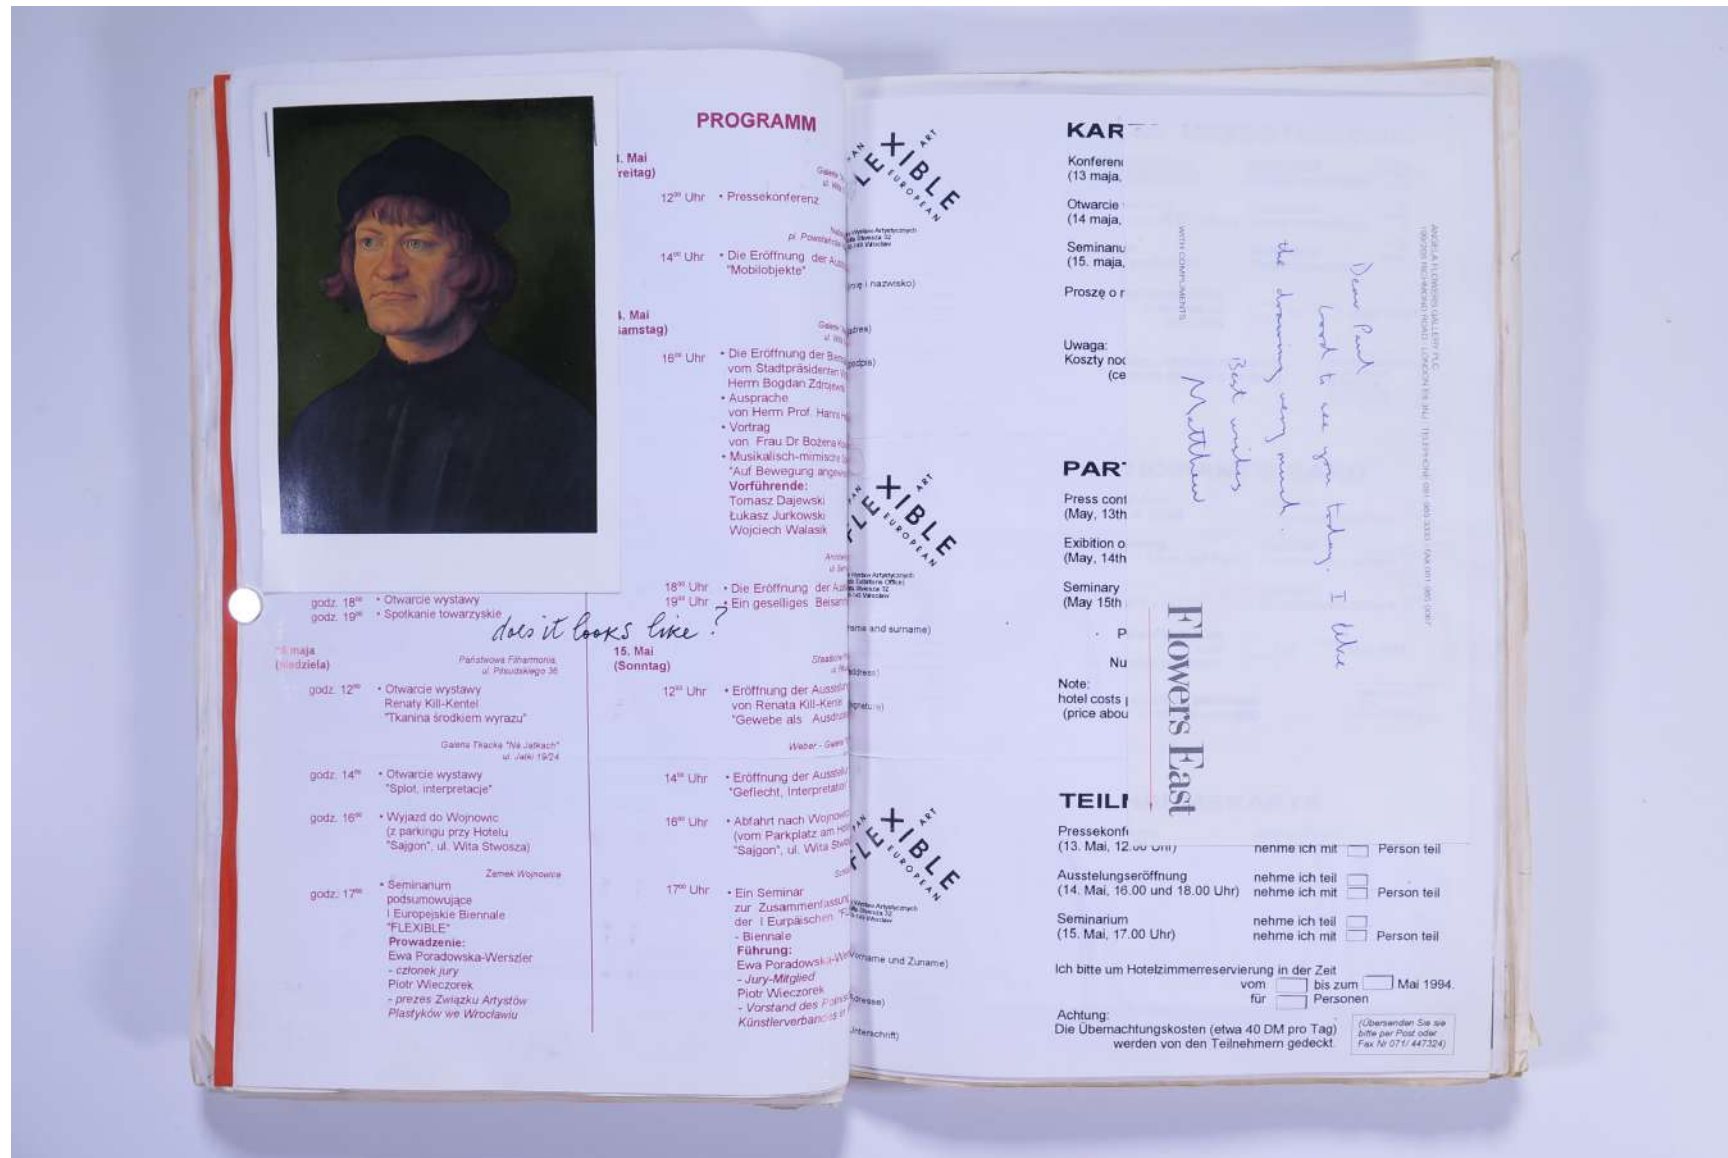 PROGRAMM
. Mai
reitag)
12⁰⁰ Uhr • Pressekonferenz
14⁰⁰ Uhr • Die Eröffnung der
"Mobilobjekte"
. Mai
amstag)
16⁰⁰ Uhr • Die Eröffnung der
vom Stadtpräsidenten
Herrn Bogdan
• Ausprache
von Herrn Prof.
• Vortrag
von Frau Dr Bożena
• Musikalisch-mimische
"Auf Bewegung
Vorführende:
Tomasz Dajewski
Łukasz Jurkowski
Wojciech Walasik
18⁰⁰ Uhr • Die Eröffnung der
19⁰⁰ Uhr • Ein geselliges
godz. 18⁰⁰ • Otwarcie wystawy
godz. 19⁰⁰ • Spotkanie towarzyskie
does it looks like?
maja
(niedziela)
Państwowa Filharmonia,
ul. Piłsudskiego 36
godz. 12⁰⁰ • Otwarcie wystawy
Renaty Kill-Kentel
"Tkanina środkiem wyrazu"
Galeria Tkacka "Na Jatkach"
ul. Jatki 19/24
godz. 14⁰⁰ • Otwarcie wystawy
"Splot, interpretacje"
godz. 16⁰⁰ • Wyjazd do Wojnowic
(z parkingu przy Hotelu
"Sajgon", ul. Wita Stwosza)
Zamek Wojnowice
godz. 17⁰⁰ • Seminarium
podsumowujące
I Europejskie Biennale
"FLEXIBLE"
Prowadzenie:
Ewa Poradowska-Werszler
- członek jury
Piotr Wieczorek
- prezes Związku Artystów
Plastyków we Wrocławiu
15. Mai
(Sonntag)
12⁰⁰ Uhr • Eröffnung der
von Renata Kill-Kentel
"Gewebe als
Weber -
14⁰⁰ Uhr • Eröffnung der
"Geflecht,
16⁰⁰ Uhr • Abfahrt nach
(vom Parkplatz am
"Sajgon", ul. Wita
17⁰⁰ Uhr • Ein Seminar
zur Zusammenfassung
der I Eurpäischen
- Biennale
Führung:
Ewa
- Jury-Mitglied
Piotr Wieczorek
- Vorstand des
Künstlerverbandes
FLEXIBLE
EUROPEAN
ART
i nazwisko)
FLEXIBLE
EUROPEAN
ART
and surname)
FLEXIBLE
EUROPEAN
ART
und Zuname)
KAR
(13 maja,
Otwarcie
(14 maja,
(15. maja,
Proszę o
Uwaga:
Koszty
(ce
PAR
Press
(May, 13th
Exibition
(May, 14th
Seminary
(May 15th
Note:
hotel costs
(price
TEIL
(13. Mai, 12.00 Uhr) nehme ich mit Person teil
Ausstelungseröffnung nehme ich teil
(14. Mai, 16.00 und 18.00 Uhr) nehme ich mit Person teil
Seminarium nehme ich teil
(15. Mai, 17.00 Uhr) nehme ich mit Person teil
Ich bitte um Hotelzimmerreservierung in der Zeit
vom bis zum Mai 1994.
für Personen
Achtung:
Die Übernachtungskosten (etwa 40 DM pro Tag)
werden von den Teilnehmern gedeckt.
(Übersenden Sie sie
bitte per Post oder
Fax Nr 071/ 447324)
ANGELA FLOWERS GALLERY PLC
199/205 RICHMOND ROAD LONDON E8 3NJ TELEPHONE 081 985 3333 FAX 081 985 0067
Dear Paul
Good to see you today. I like
the drawing very much.
Best wishes
Matthew
WITH COMPLIMENTS
Flowers East